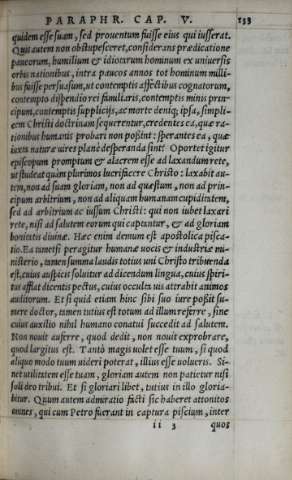 PARAPHR. CAP. V. 133
quidem esse suam, sed prouentum fuisse eius qui iusserat.
Quis autem non obstupesceret, considerans prædicatione
paucorum, humilium & idiotarum hominum ex uniuersis
orbis nationibus, intra paucos annos tot hominum milli-
bus fuisse persuasum, ut contemptis affectibus cognatorum,
contempto dispendio rei familiaris, contemptis minis prin-
cipum, contemptis supplicijs, ac morte deniq; ipsa, simpli-
cem Christi doctrinam sequerentur, credentes ea, quæ ra-
tionibus humanis probari non possint: sperantes ea, quæ
iuxta naturæ uires planè desperanda sint? Oportet igitur
episcopum promptum & alacrem esse ad laxandum rete,
ut studeat quàm plurimos lucrifacere Christo: laxabit au-
tem, non ad suam gloriam, non ad quæstum, non ad prin-
cipum arbitrium, non ad aliquam humanam cupiditatem,
sed ad arbitrium ac iussum Christi: qui non iubet laxari
rete, nisi ad salutem eorum qui captantur, & ad gloriam
bonitatis diuinæ. Hæc enim demum est apostolica pisca-
tio. Ea tametsi peragitur humanæ uocis & industriæ mi-
nisterio, tamen summa laudis totius uni Christo tribuenda
est, cuius auspicijs soluitur ad dicendum lingua, cuius spiri-
tus afflat dicentis pectus, cuius occulta uis attrahit animos
auditorum. Et si quid etiam hinc sibi suo iure posset su-
mere doctor, tamen tutius est totum ad illum referre, sine
cuius auxilio nihil humano conatui succedit ad salutem.
Non nouit auferre, quod dedit, non nouit exprobrare,
quod largitus est. Tantò magis uolet esse tuum, si quod
aliquo modo tuum uideri poterat, illius esse uolueris. Si-
net utilitatem esse tuam, gloriam autem non patietur nisi
soli deo tribui. Et si gloriari libet, tutius in illo gloria-
bitur. Quum autem admiratio facti sic haberet attonitos
omnes, qui cum Petro fuerant in captura piscium, inter
ii 3 quos